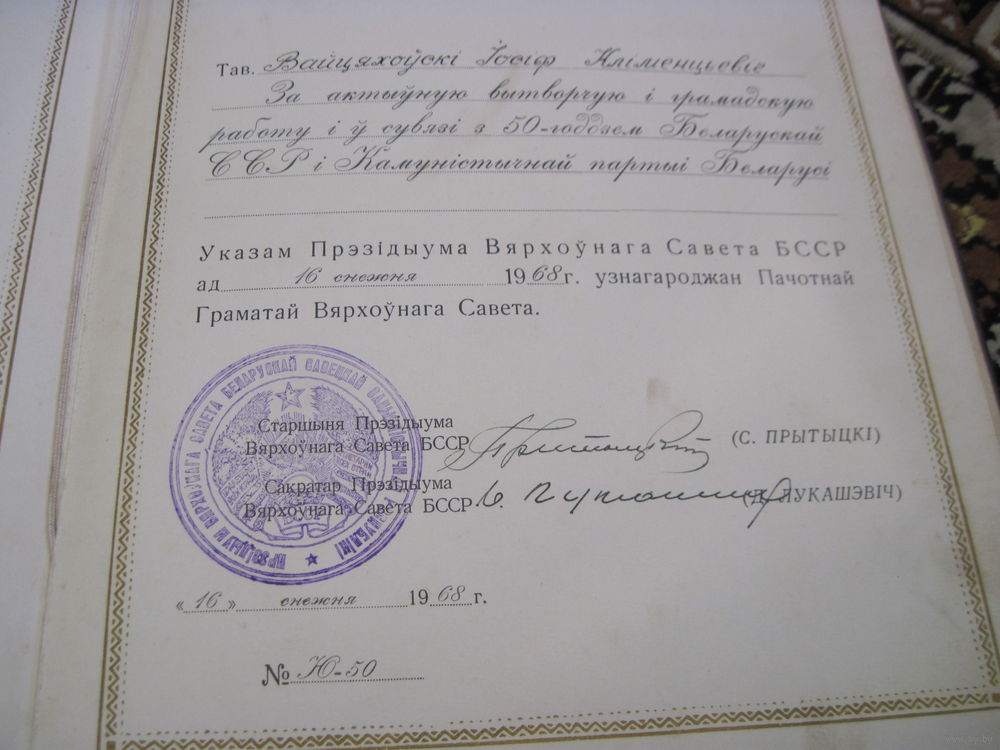 Тав. Вайцяхоўскі Іосіф Кліменцьевіч
За актыўную вытворчую і грамадскую
работу і ў сувязі з 50-годдзем Беларускай
ССР і Камуністычнай партыі Беларусі
Указам Прэзідыума Вярхоўнага Савета БССР
ад 16 снежня 1968 г. узнагароджан Пачотнай
Граматай Вярхоўнага Савета.
ПРЭЗІДЫУМ ВЯРХОЎНАГА САВЕТА БЕЛАРУСКАЙ САВЕЦКАЙ САЦЫЯЛІСТЫЧНАЙ РЭСПУБЛІКІ
Старшыня Прэзідыума
Вярхоўнага Савета БССР (С. ПРЫТЫЦКІ)
Сакратар Прэзідыума
Вярхоўнага Савета БССР ЛУКАШЭВІЧ)
«16» снежня 1968 г.
№ Ю-50